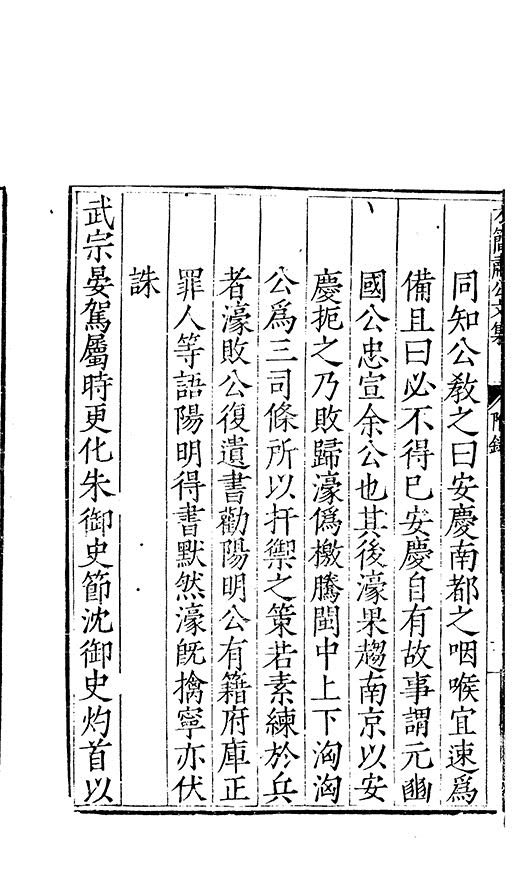 簡肅公文集 附錄
同知公敎之曰安慶南都之咽喉宜速爲
備且曰必不得已安慶自有故事謂元豳
國公忠宣余公也其後濠果趨南京以安
慶扼之乃敗歸濠僞檄騰閩中上下洶洶
公爲三司條所以扞禦之策若素練於兵
者濠敗公復遺書勸陽明公有籍府庫正
罪人等語陽明得書默然濠旣擒寧亦伏
誅
武宗晏駕屬時更化朱御史節沈御史灼首以